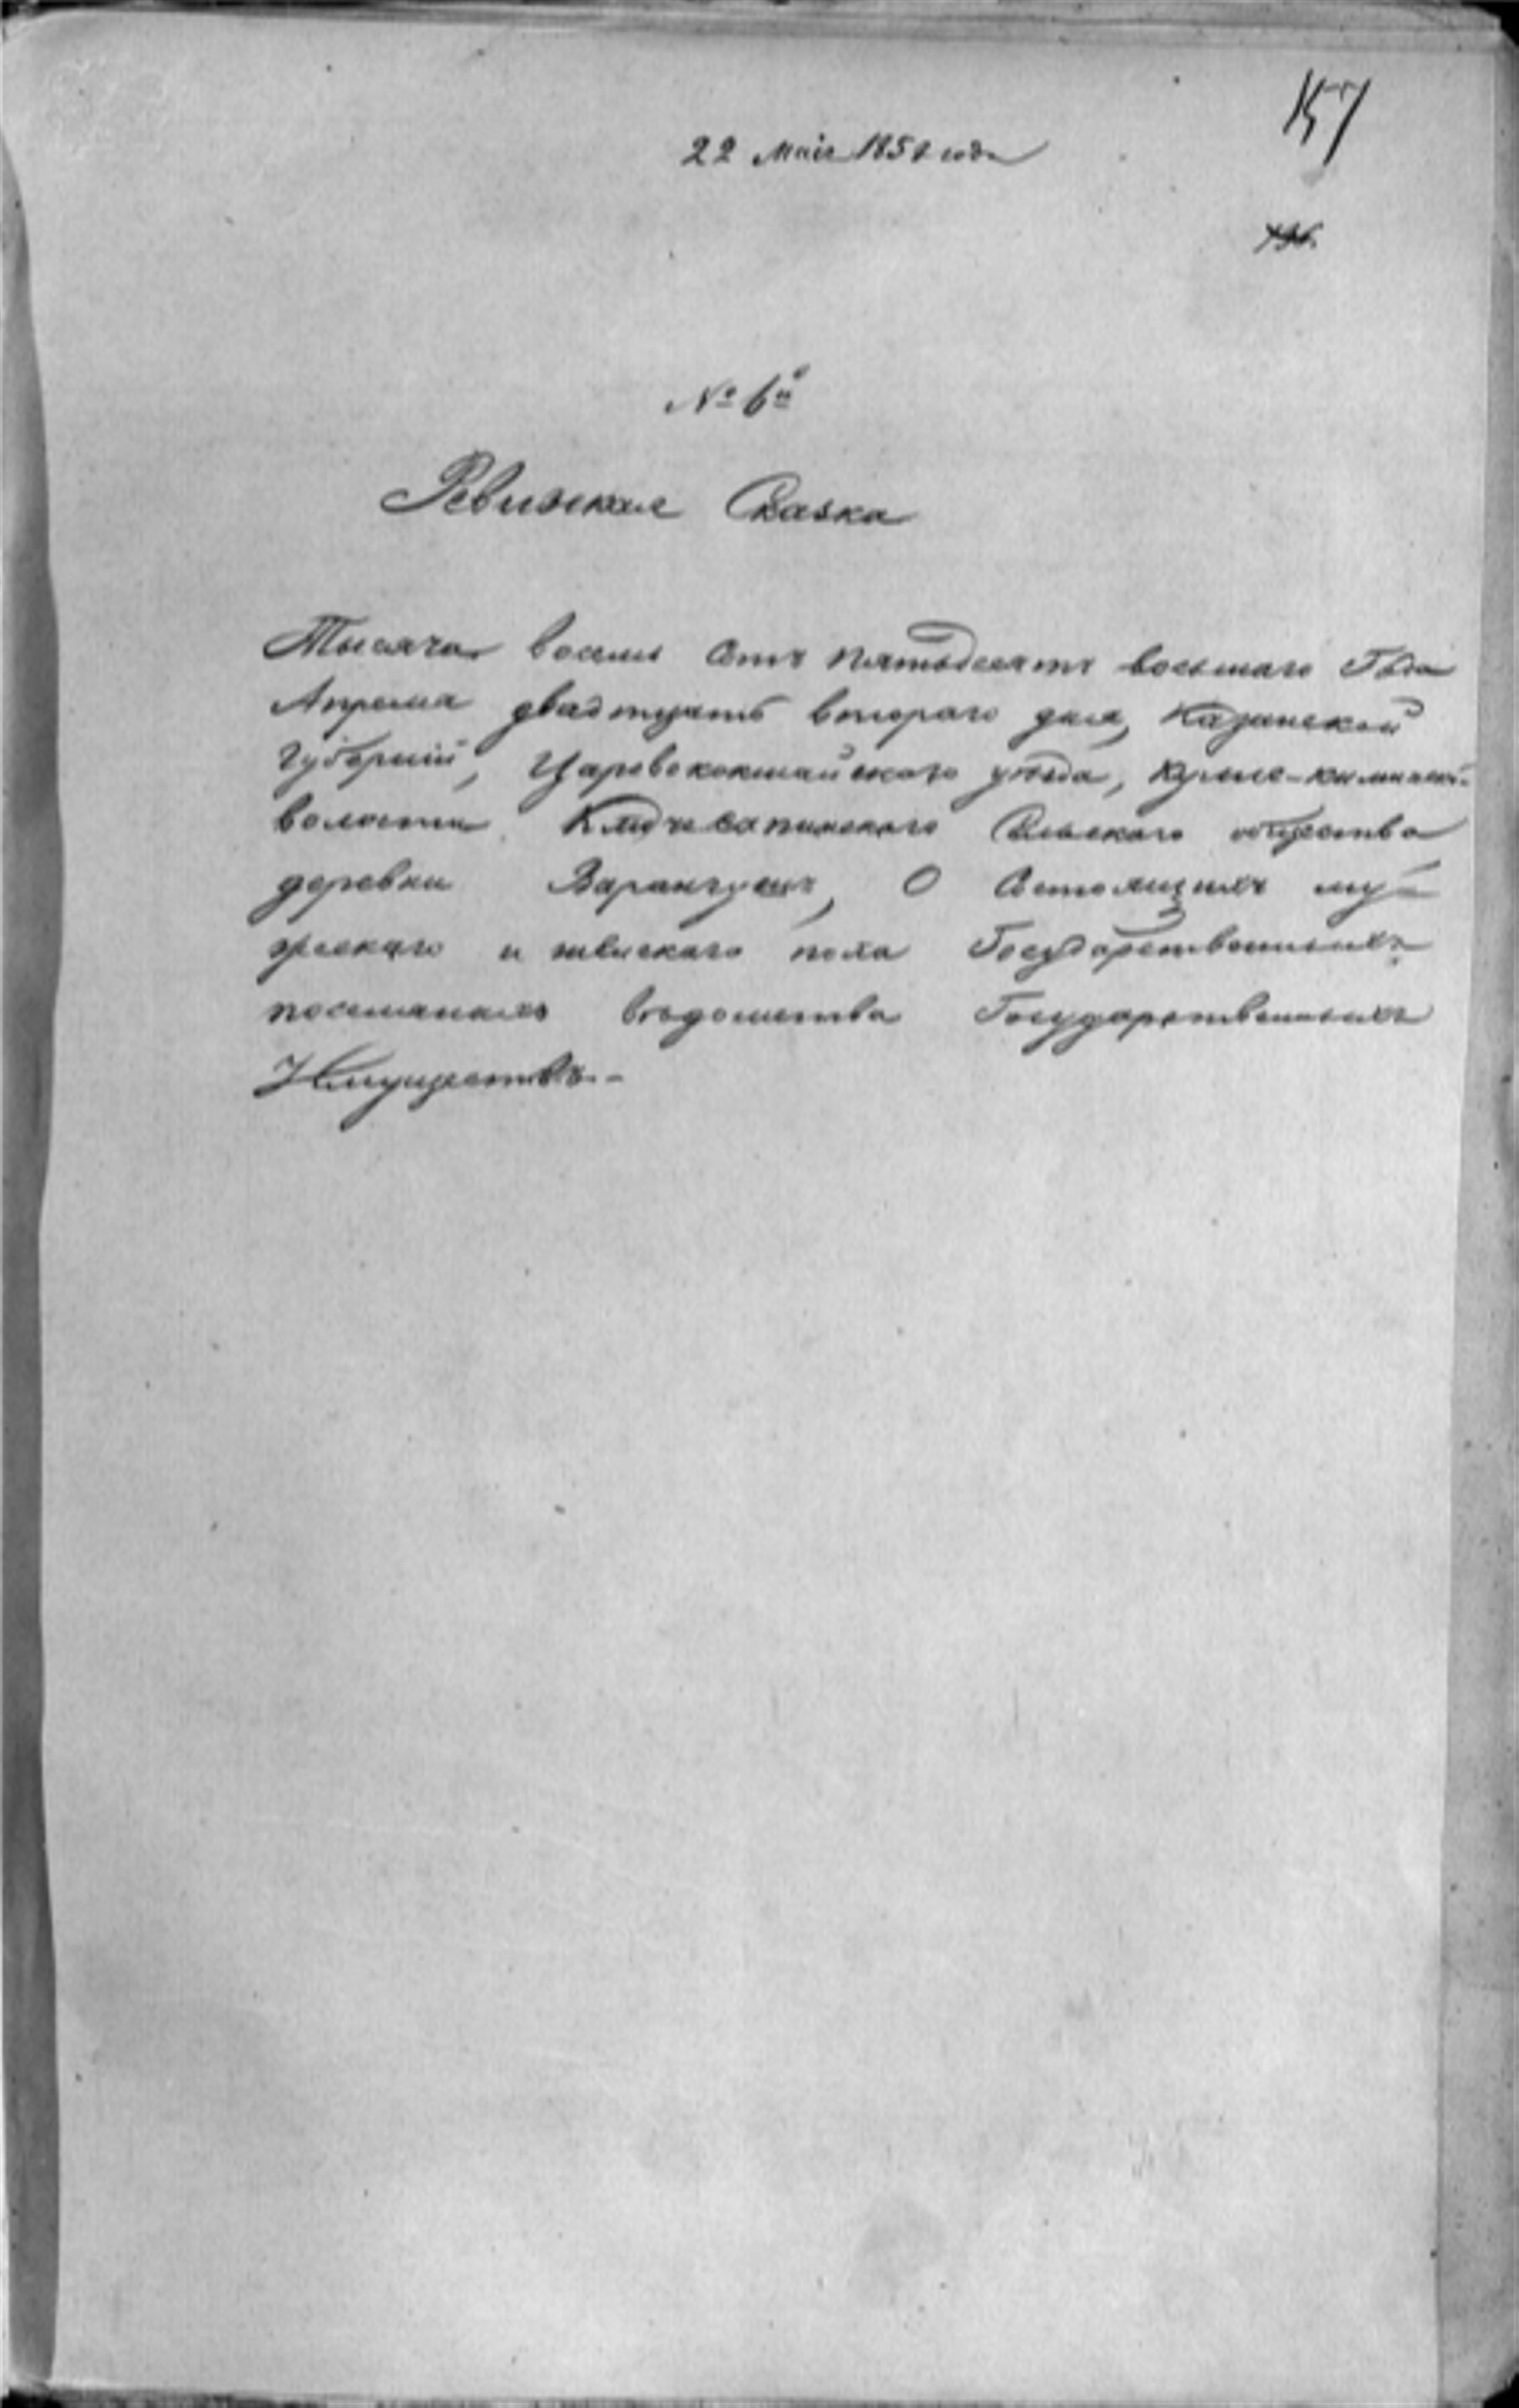 157
22 Маія 1858 года
№ 6й
Ревизская Сказка
Тысяча восемь Сотъ пятьдесятъ восьмаго Года
Апреля двадтцать втораго дня, Казанской
губерніи, Царевококшайскаго уѣзда, Кулле-Киминской
волости Сельскаго общества
деревни Варангушъ, О Состоящихъ му-
жескаго и женскаго пола Государственныхъ
поселянахъ вѣдомства Государственныхъ
Имуществъ.-